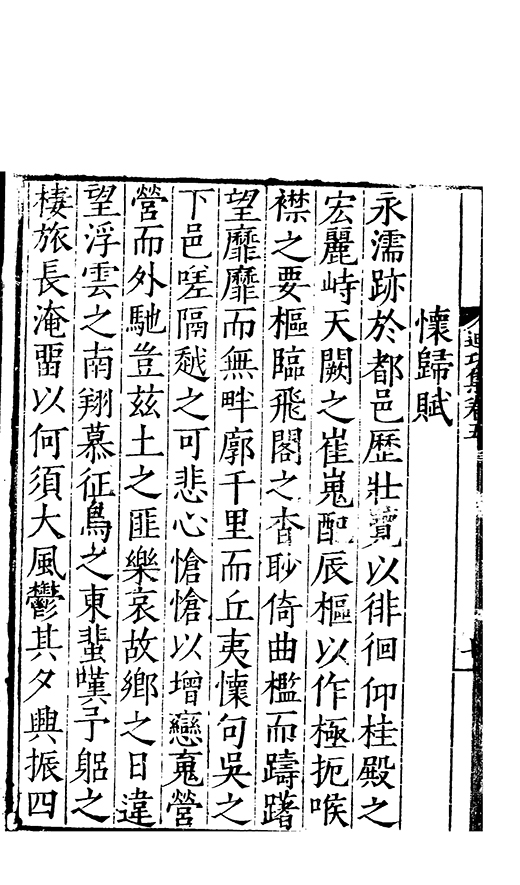 迪功集卷五
懷歸賦
永濡跡於都邑歷壯覽以徘徊仰桂殿之
宏麗峙天闕之崔嵬配辰樞以作極扼喉
襟之要樞臨飛閣之杳眇倚曲檻而躊躇
望靡靡而無畔廓千里而丘夷懷句吳之
下邑嗟隔越之可悲心愴愴以增戀䰟營
營而外馳豈茲土之匪樂哀故鄉之日違
望浮雲之南翔慕征鳥之東蜚嘆予躳之
棲旅長淹畱以何須大風鬱其夕興振四